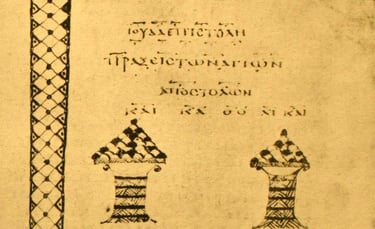 ΙΟΥΔΑ ΕΠΙϹΤΟΛΗ
ΠΡΑΞΕΙϹ ΤΩΝ ΑΓΙΩΝ
ΑΠΟϹΤΟΛΩΝ
ΚΑΙ ΚΑ ΘΟ ΛΙ ΚΑΙ